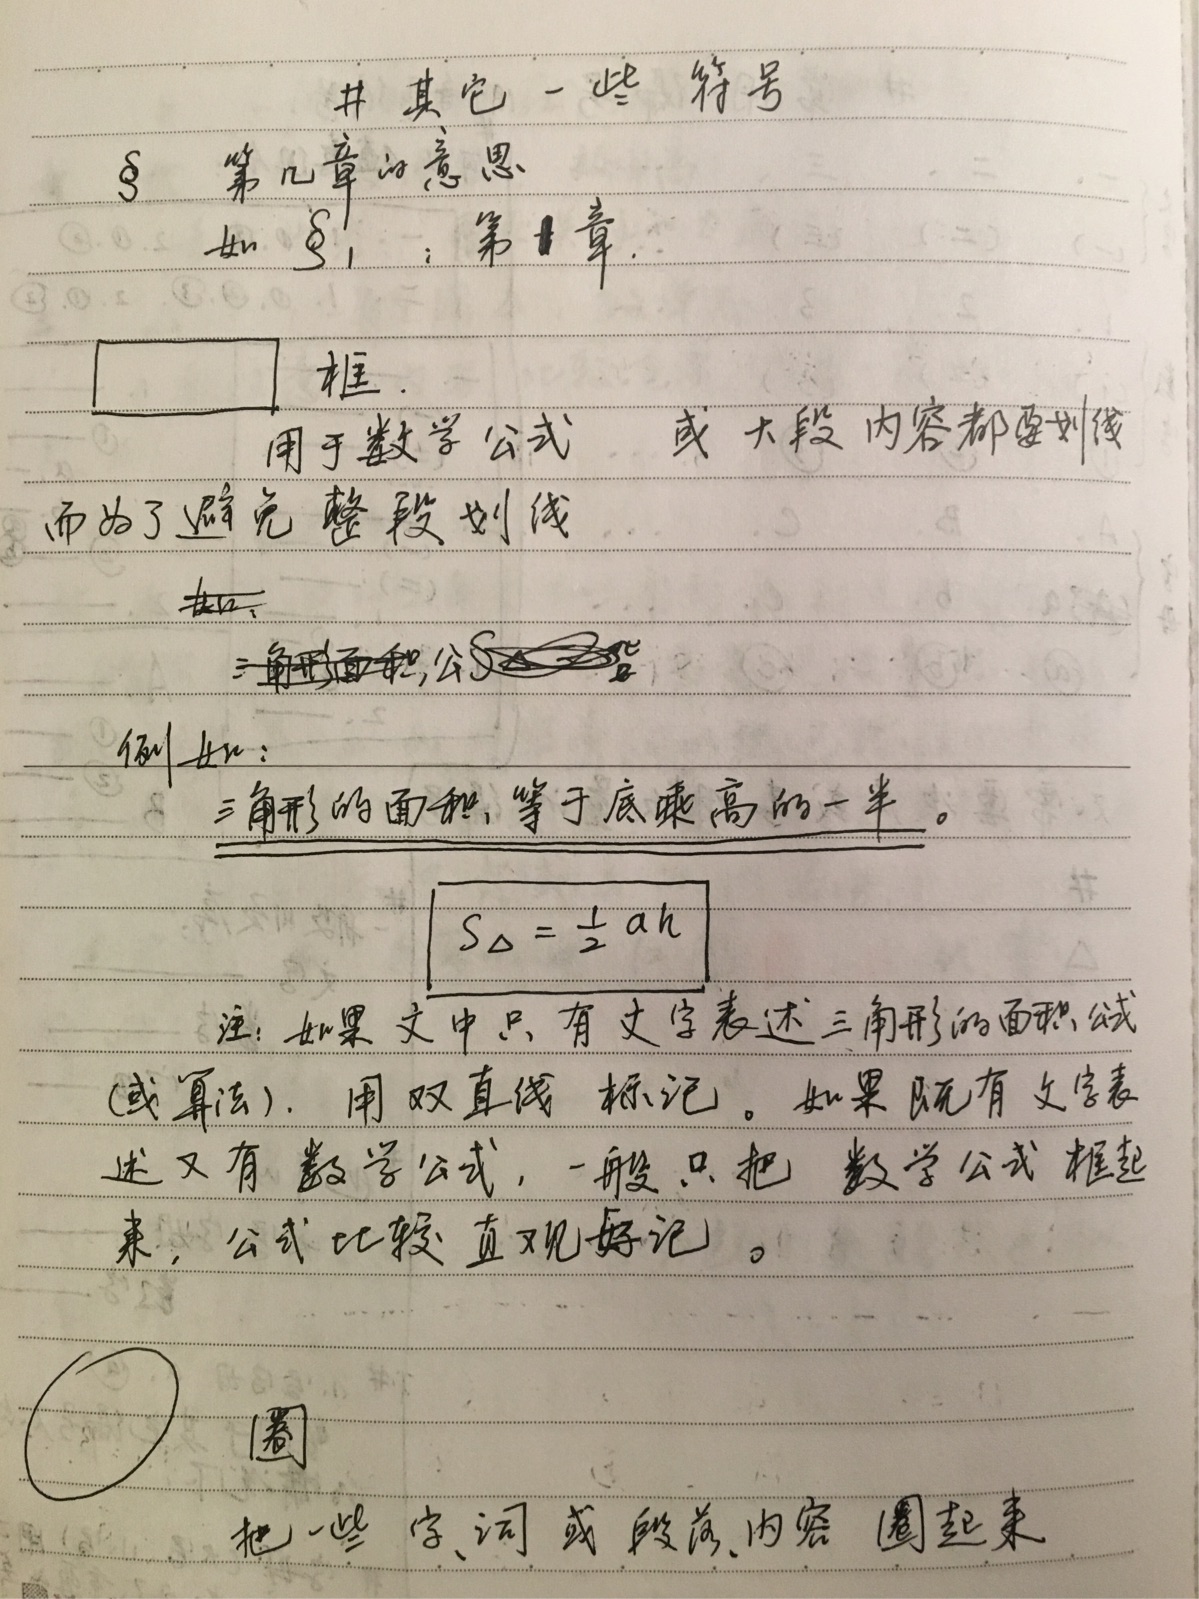 # 其它一些符号
§ 第几章的意思
如 §1 : 第1章.
框.
用于数学公式 或大段内容都要划线
而为了避免整段划线
如:
三角形面积,公
例如:
三角形的面积,等于底乘高的一半。
S△ = 1/2 ah
注:如果文中只有文字表述三角形的面积公式
(或算法).用双直线标记。如果既有文字表
述又有数学公式,一般只把数学公式框起
来,公式比较直观好记。
圈
把一些字、词或段落、内容圈起来